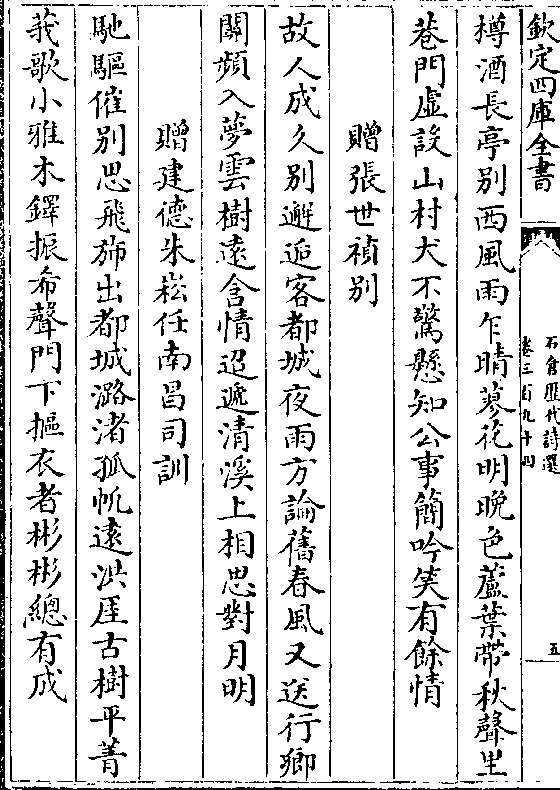 欽定四庫全書
石倉歷代詩選
卷三百九十四
五
樽酒長亭別西風雨乍晴蓼花明晚色蘆葉帶秋聲里
巷門虛設山村犬不驚懸知公事簡吟笑有餘情
贈張世禎別
故人成久別邂逅客都城夜雨方論舊春風又送行鄉
關頻入夢雲樹遠含情迢遞清溪上相思對月明
贈建德朱崧任南昌司訓
馳驅催別思飛斾出都城潞渚孤帆遠洪厓古樹平菁
莪歌小雅木鐸振希聲門下摳衣者彬彬總有成